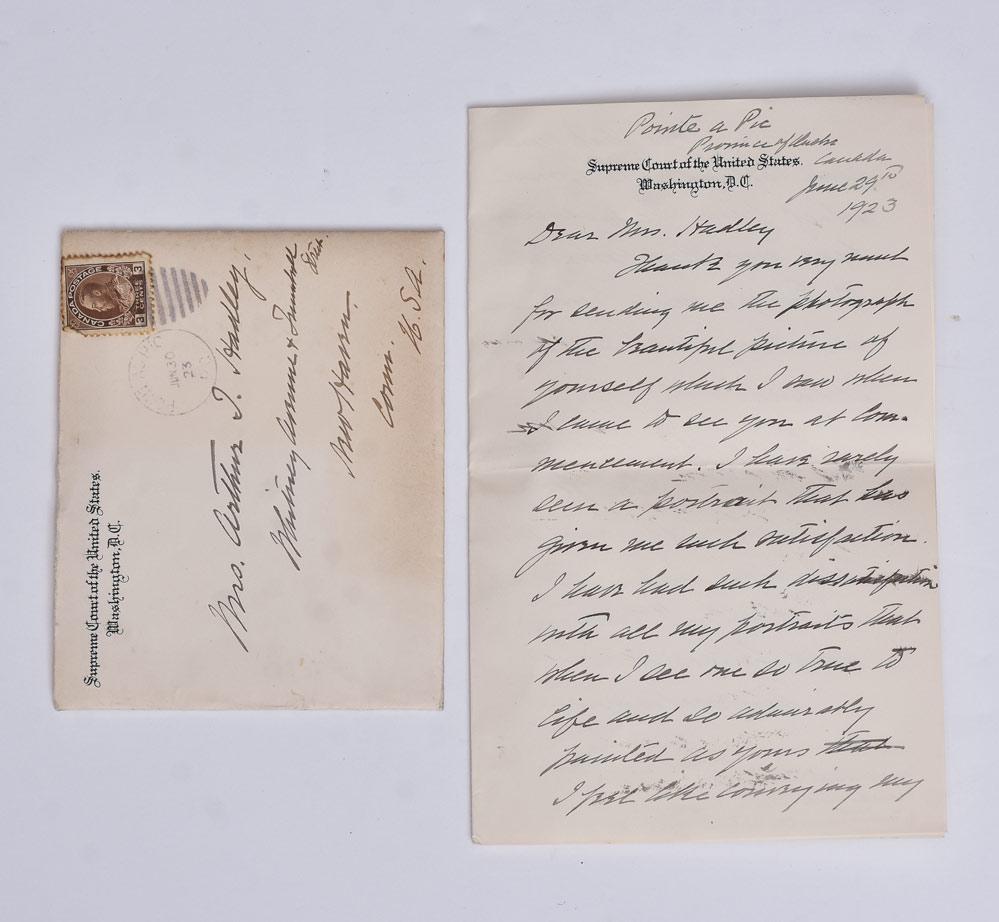 CANADA POSTAGE
3 THREE CENTS 3
JUN 30
23
Supreme Court of the United States.
Washington, D.C.
Mrs. Arthur T. Hadley,
Whitney Avenue & Trumbull
New Haven.
Conn.
U.S.A.
Pointe a Pic
Province of Quebec
Canada
Supreme Court of the United States.
Washington, D.C.
June 29th
1923
Dear Mrs. Hadley
Thank you very much
for sending me the photograph
of the beautiful picture of
yourself which I saw when
I came to see you at Com-
mencement. I have rarely
seen a portrait that has
given me such satisfaction.
I have had such dissatisfaction
with all my portraits that
when I see one so true to
life and so admirably
painted as yours that
I feel like conveying my